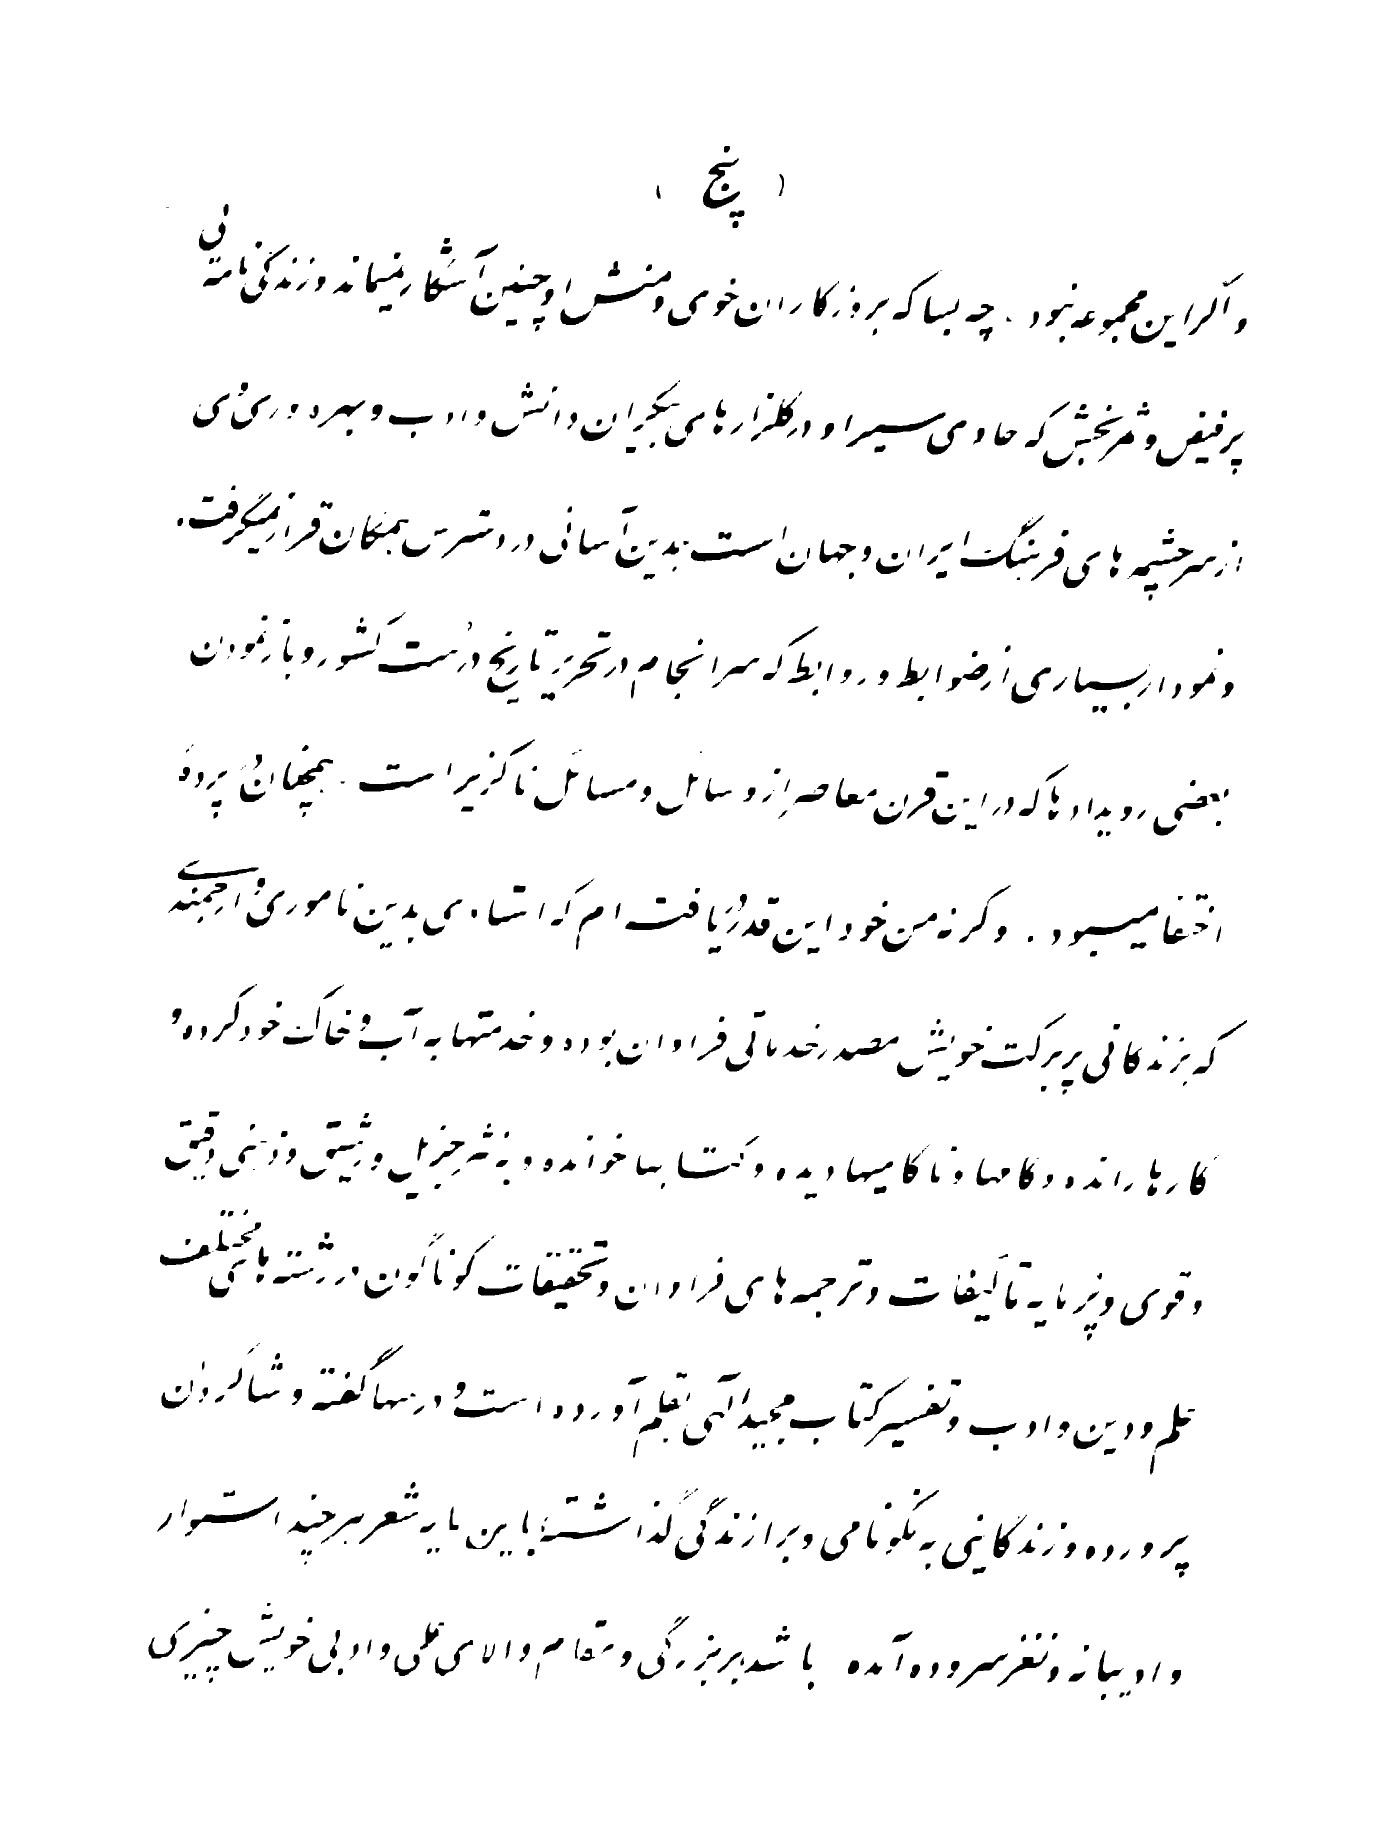 ( پنج )
و اگر این مجموعه نبود . چه بسا که بروزگاران خوی و منش او چنین آشکار نمیماند و زندگی نامه‌ئی
پرفیض و ثمربخش که حاوی سیر او در گلزارهای بیکران دانش و ادب و بهره وری وی
از سرچشمه های فرهنگ ایران و جهان است بدین آسانی در دسترس همگان قرار نمیگرفت .
و نمودار بسیاری از ضوابط و روابط که سرانجام در تحریر تاریخ درست کشور و باز نمودن
بعضی رویدادها که در این قرن معاصر از وسائل و مسائل ناگزیر است . همچنان در پردهٔ
اختفا میبود . وگرنه من خود این قدر دریافته ام که استادی بدین ناموری و ارجمندی
که بزندگانی پر برکت خویش مصدر خدماتی فراوان بوده و خدمتها به آب و خاک خود کرده و
کارها رانده و کامها و ناکامیها دیده و کتابها خوانده و به نثر جزیل و رشیق و ذهنی دقیق
و قوی و پرمایه تألیفات و ترجمه های فراوان و تحقیقات گوناگون در رشته های مختلف
علم و دین و ادب و تفسیر کتاب مجید الهی بقلم آورده است و درسها گفته و شاگردان
پرورده و زندگانیی به نکونامی و برازندگی گذاشته باین مایه شعر هر چند استوار
و ادیبانه و نغز سروده آمده باشد بر بزرگی و مقام والای علمی و ادبی خویش چیزی